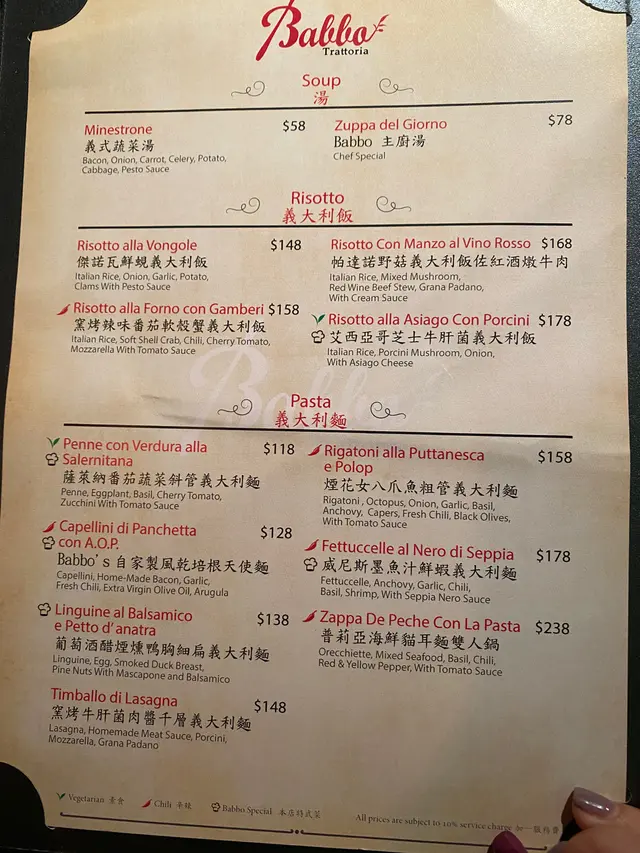 Babbo
Trattoria
Soup
湯
Minestrone $58
義式蔬菜湯
Bacon, Onion, Carrot, Celery, Potato,
Cabbage, Pesto Sauce
Zuppa del Giorno $78
Babbo 主廚湯
Chef Special
Risotto
義大利飯
Risotto alla Vongole $148
傑諾瓦鮮蜆義大利飯
Italian Rice, Onion, Garlic, Potato,
Clams With Pesto Sauce
Risotto Con Manzo al Vino Rosso $168
帕達諾野菇義大利飯佐紅酒燉牛肉
Italian Rice, Mixed Mushroom,
Red Wine Beef Stew, Grana Padano,
With Cream Sauce
Risotto alla Forno con Gamberi $158
窯烤辣味番茄軟殼蟹義大利飯
Italian Rice, Soft Shell Crab, Chili, Cherry Tomato,
Mozzarella With Tomato Sauce
Risotto alla Asiago Con Porcini $178
艾西亞哥芝士牛肝菌義大利飯
Italian Rice, Porcini Mushroom, Onion,
With Asiago Cheese
Babbo
Pasta
義大利麵
Penne con Verdura alla $118
Salernitana
薩萊納番茄蔬菜斜管義大利麵
Penne, Eggplant, Basil, Cherry Tomato,
Zucchini With Tomato Sauce
Capellini di Panchetta $128
con A.O.P.
Babbo's 自家製風乾培根天使麵
Capellini, Home-Made Bacon, Garlic,
Fresh Chili, Extra Virgin Olive Oil, Arugula
Linguine al Balsamico $138
e Petto d'anatra
葡萄酒醋煙燻鴨胸細扁義大利麵
Linguine, Egg, Smoked Duck Breast,
Pine Nuts With Mascapone and Balsamico
Timballo di Lasagna $148
窯烤牛肝菌肉醬千層義大利麵
Lasagna, Homemade Meat Sauce, Porcini,
Mozzarella, Grana Padano
Rigatoni alla Puttanesca $158
e Polop
煙花女八爪魚粗管義大利麵
Rigatoni , Octopus, Onion, Garlic, Basil,
Anchovy, Capers, Fresh Chili, Black Olives,
With Tomato Sauce
Fettuccelle al Nero di Seppia $178
威尼斯墨魚汁鮮蝦義大利麵
Fettuccelle, Anchovy, Garlic, Chili,
Basil, Shrimp, With Seppia Nero Sauce
Zappa De Peche Con La Pasta $238
普莉亞海鮮貓耳麵雙人鍋
Orecchiette, Mixed Seafood, Basil, Chili,
Red & Yellow Pepper, With Tomato Sauce
Vegetarian 素食 Chili 辛辣 Babbo Special 本店特式菜
All prices are subject to 10% service charge 加一服務費